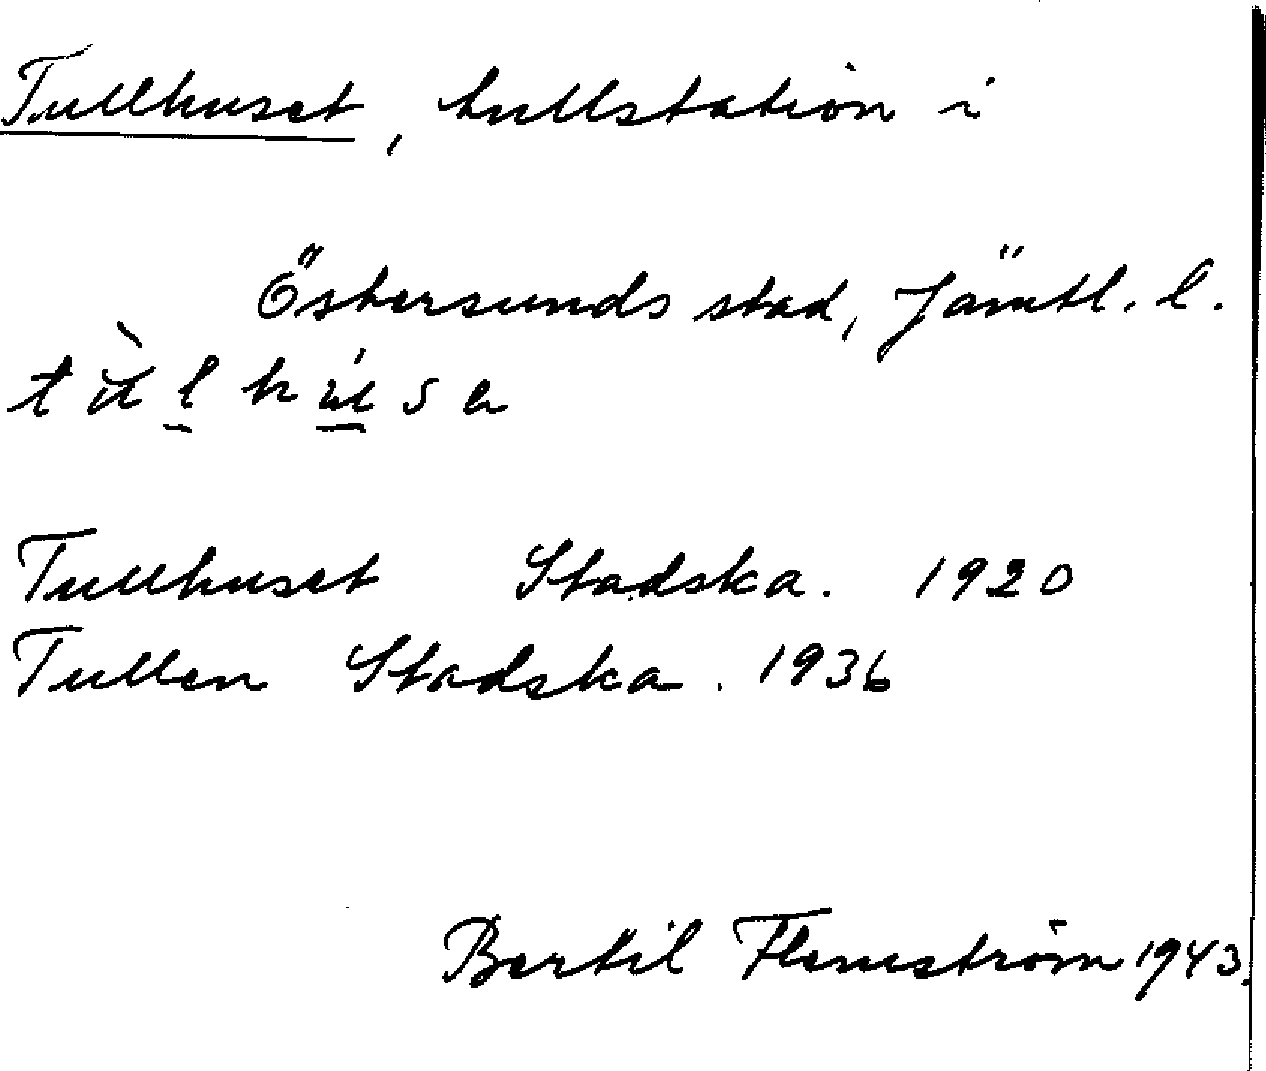 Tullhuset, tullstation i
Östersunds stad, Jämtl. l.
Tullhuset Stadska. 1920
Tullen Stadska. 1936
Bertil Flemström 1943.